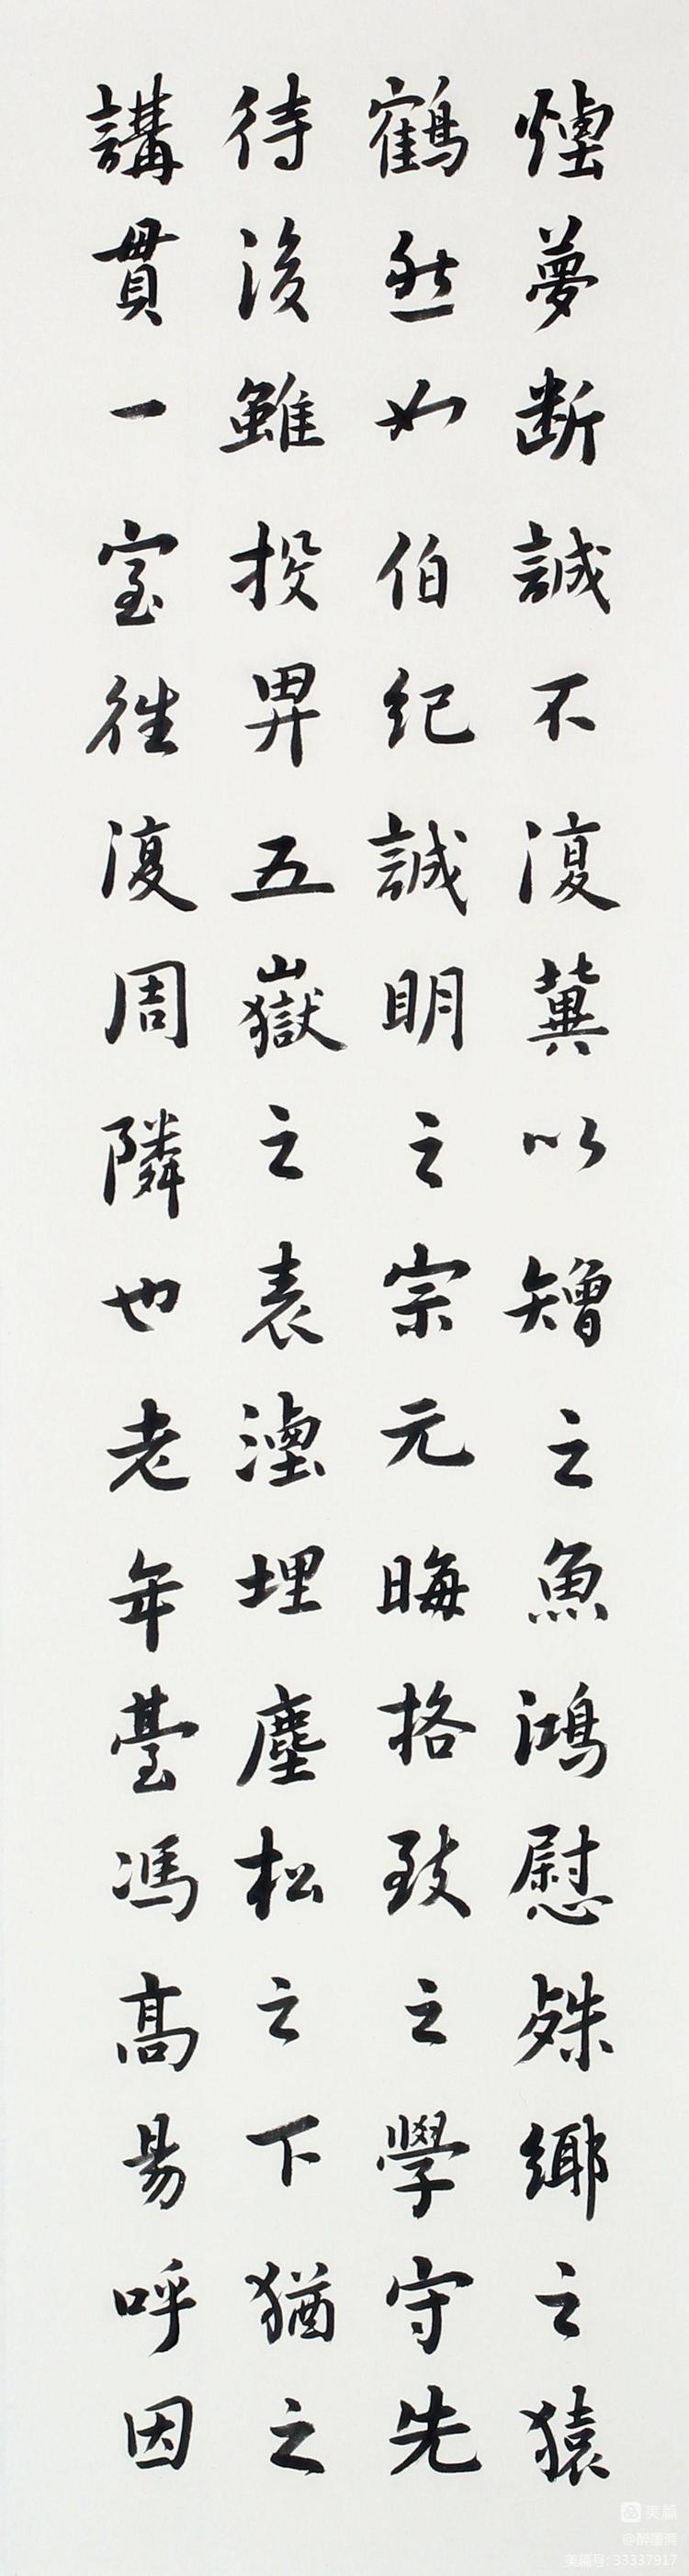 煙夢断誠不復冀以矰之魚鴻慰殊鄉之猿
鶴然如伯紀誠明之宗元晦格致之學守先
待後雖投畀五嶽之表湮埋塵松之下猶之
講貫一室往復周隣也老年臺馮高易呼因
美篇
@醉墨斋
美篇号: 33337917